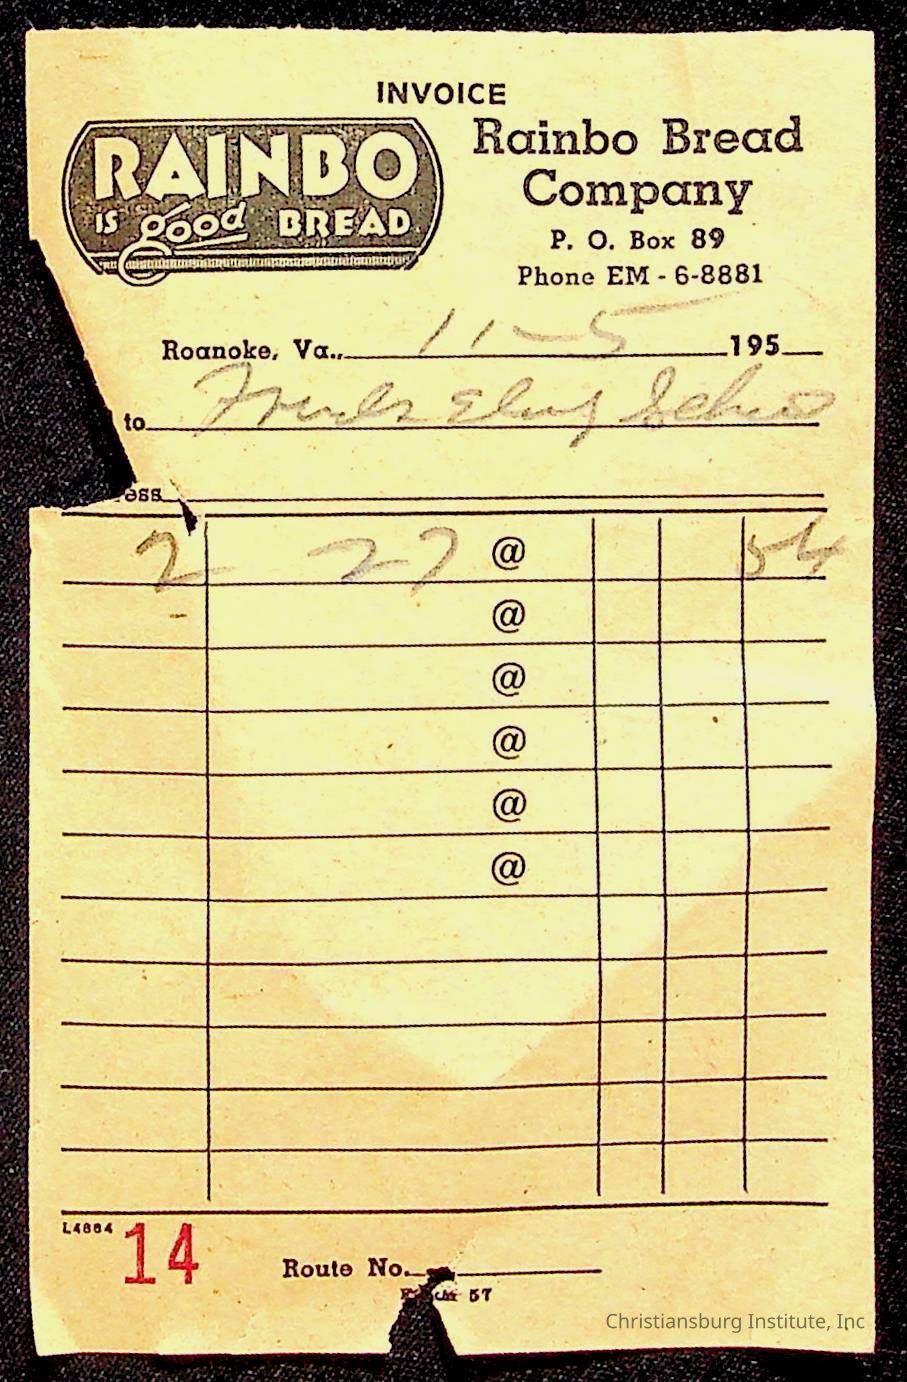 INVOICE
RAINBO
IS good BREAD
Rainbo Bread
Company
P. O. Box 89
Phone EM - 6-8881
Roanoke, Va., 11-5 195
to
ess
2 27 @ 54
@
@
@
@
@
L4884
14
Route No.
57
Christiansburg Institute, Inc